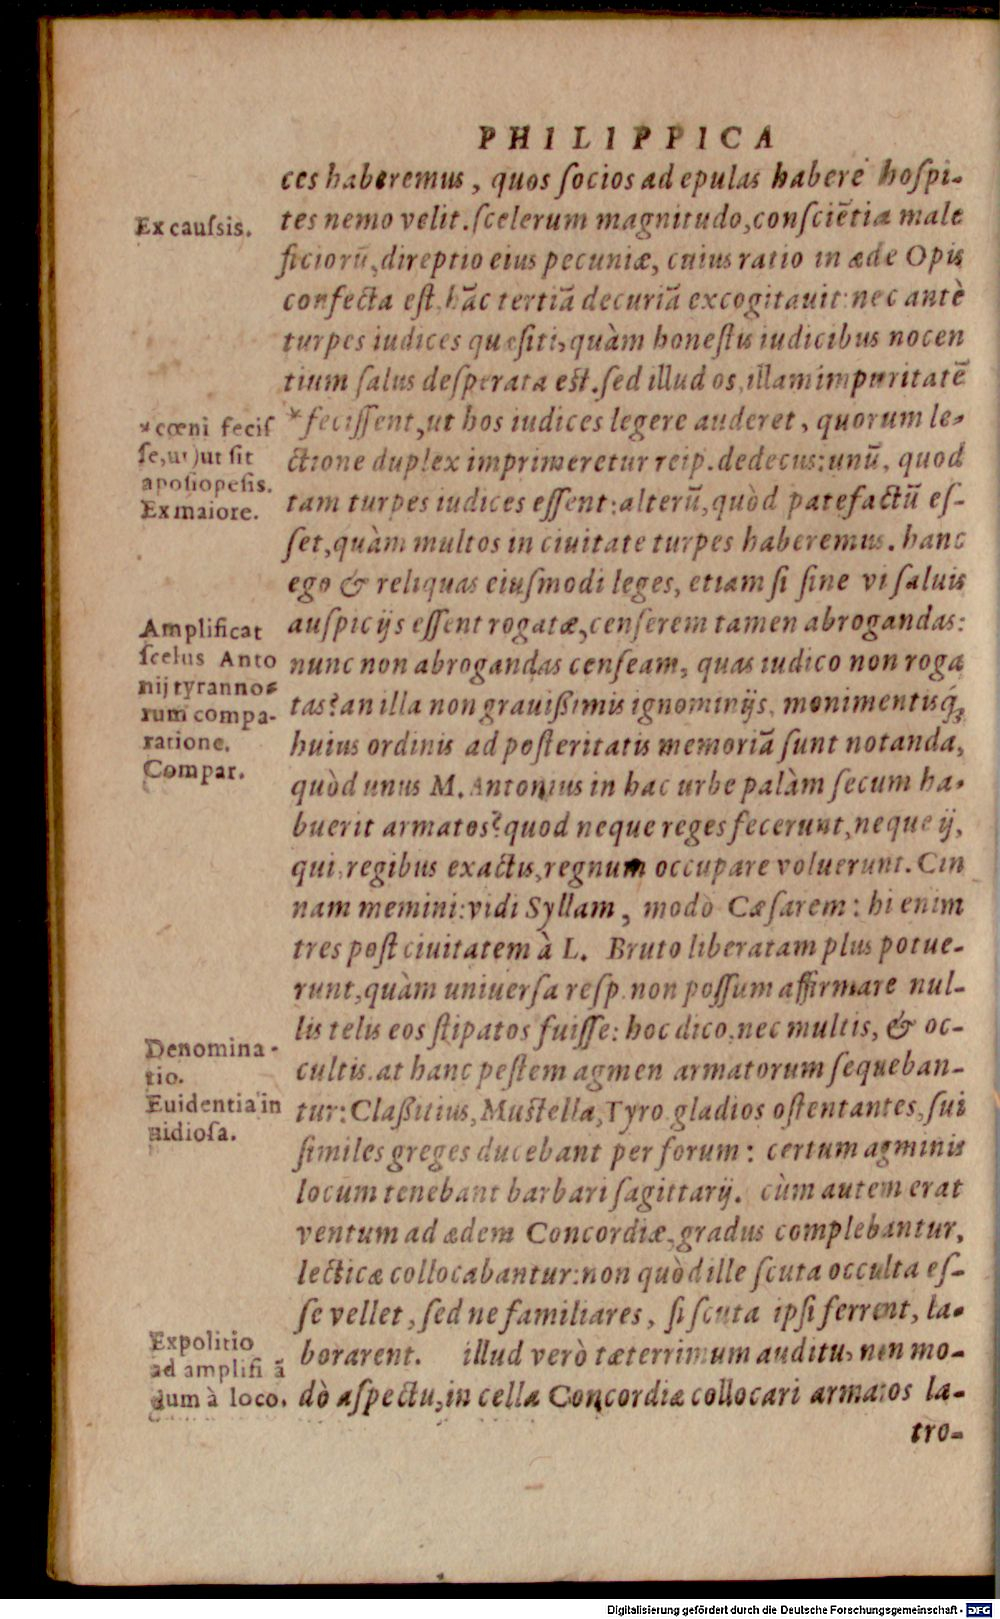 PHILIPPICA
ces haberemus, quos ſocios ad epulas habere hoſpi-
tes nemo velit. ſcelerum magnitudo, conſciẽtia male
ficiorũ, direptio eius pecuniæ, cuius ratio in æde Opis
confecta eſt, hãc tertiã decuriã excogitauit: nec antè
turpes iudices quæſiti, quàm honeſtis iudicibus nocen
tium ſalus deſperata eſt. ſed illud os, illam impuritatẽ
*feciſſent, ut hos iudices legere auderet, quorum le-
ctione duplex imprimeretur reip. dedecus: unũ, quod
tam turpes iudices eſſent: alterũ, quòd patefactũ eſ-
ſet, quàm multos in ciuitate turpes haberemus. hanc
ego & reliquas eiuſmodi leges, etiam ſi ſine vi ſaluis
auſpicijs eſſent rogatæ, cenſerem tamen abrogandas:
nunc non abrogandas cenſeam, quas iudico non roga
tas? an illa non grauißimis ignominijs, monimentisq́;
huius ordinis ad poſteritatis memoriã ſunt notanda,
quòd unus M. Antonius in hac urbe palàm ſecum ha-
buerit armatos? quod neque reges fecerunt, neque ij,
qui, regibus exactis, regnum occupare voluerunt. Cin
nam memini: vidi Syllam, modò Cæſarem: hi enim
tres poſt ciuitatem à L. Bruto liberatam plus potue-
runt, quàm uniuerſa reſp. non poſſum affirmare nul-
lis telis eos ſtipatos fuiſſe: hoc dico, nec multis, & oc-
cultis. at hanc peſtem agmen armatorum ſequeban-
tur: Claßitius, Muſtella, Tyro gladios oſtentantes, ſui
ſimiles greges ducebant per forum: certum agminis
locum tenebant barbari ſagittarij. cùm autem erat
ventum ad ædem Concordiæ, gradus complebantur,
lecticæ collocabantur: non quòd ille ſcuta occulta eſ-
ſe vellet, ſed ne familiares, ſi ſcuta ipſi ferrent, la-
borarent. illud verò tæterrimum auditu, non mo-
dò aſpectu, in cella Concordiæ collocari armatos la-
tro-
Ex cauſsis.
*cœni feciſ
ſe, ut) ut ſit
apoſiopeſis.
Ex maiore.
Amplificat
ſcelus Anto
nij tyranno-
rum compa-
ratione.
Compar.
Denomina-
tio.
Euidentia in
uidioſa.
Expolitio
ad amplifi ã
dum à loco.
Digitalisierung gefördert durch die Deutsche Forschungsgemeinschaft - DFG